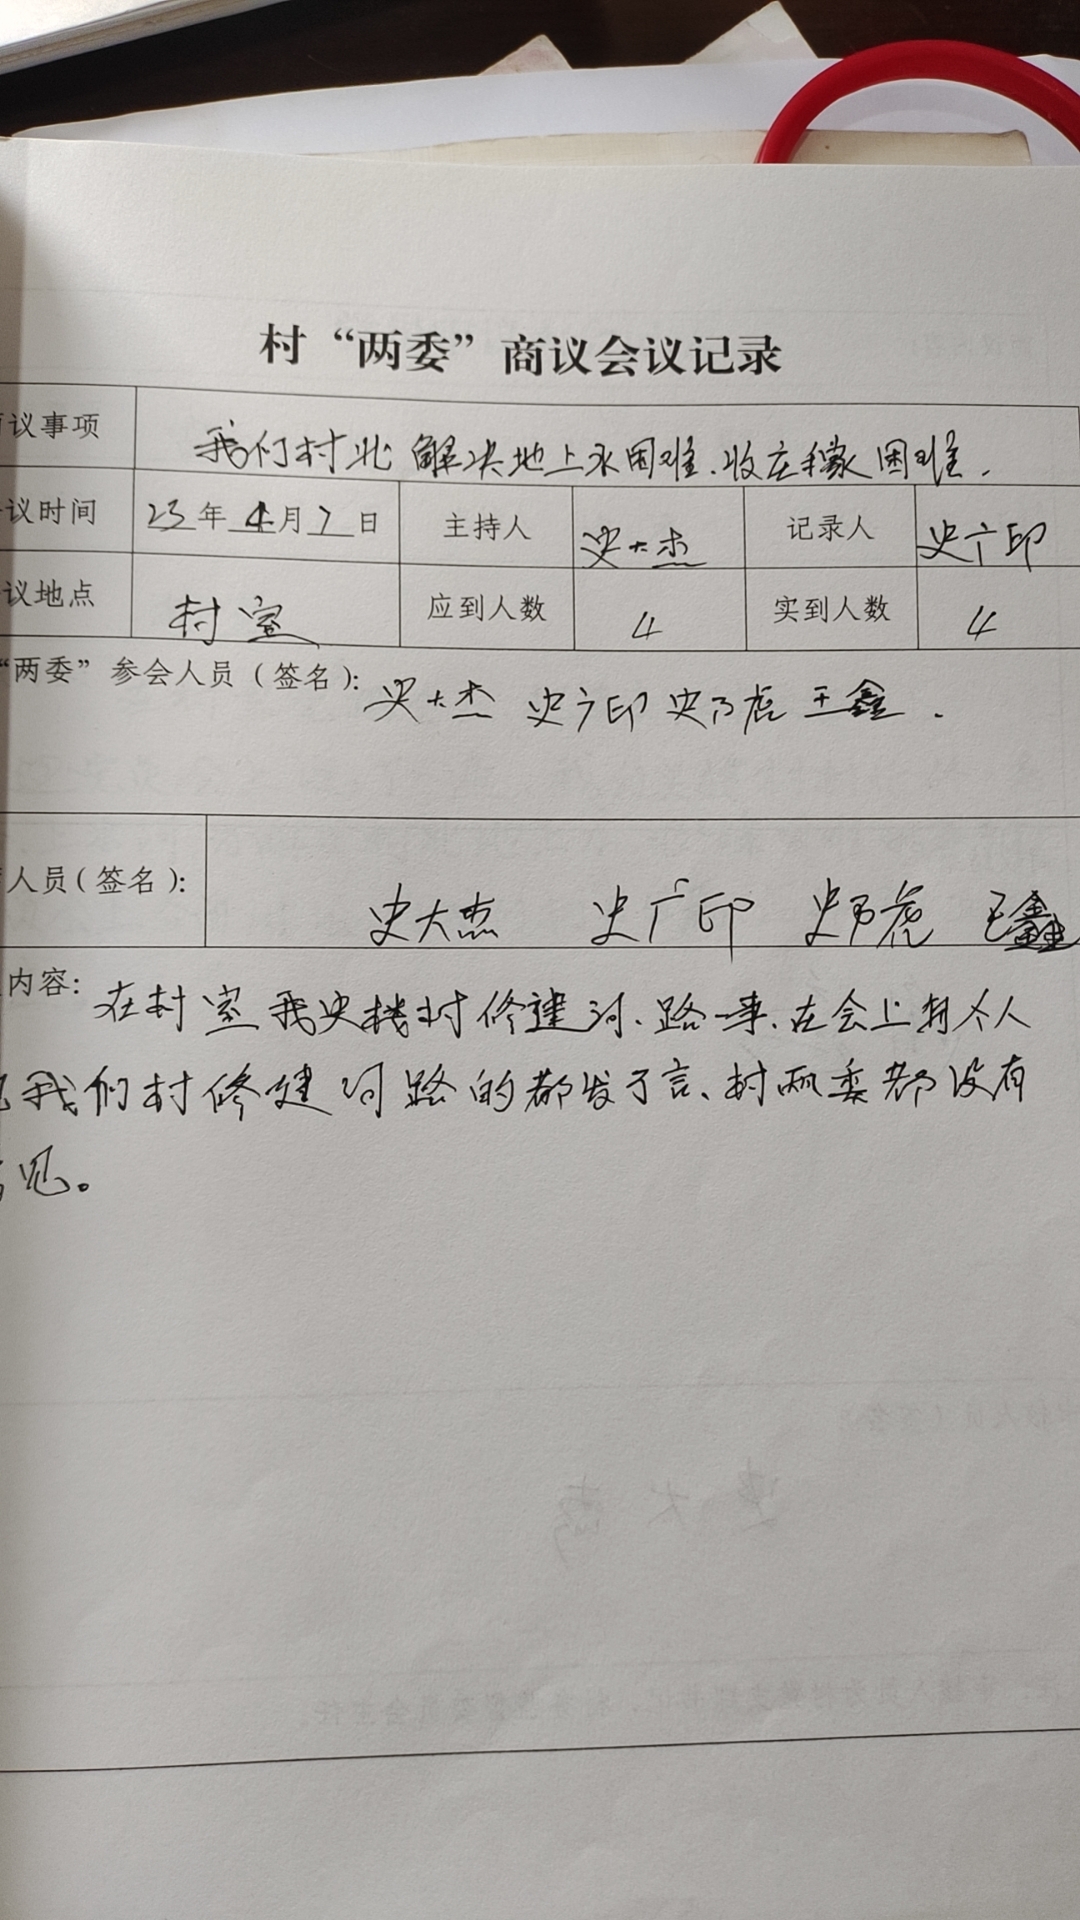 村“两委”商议会议记录
议事项 我们村北解决地上水困难、收庄稼困难.
议时间 23年4月7日 主持人 史大杰 记录人 史广印
议地点 村室 应到人数 4 实到人数 4
“两委”参会人员（签名）: 史大杰 史广印 史乃虎 王鑫.
人员（签名）: 史大杰 史广印 史乃虎 王鑫
内容: 在村室我史楼村修建河、路一事、在会上每个人
我们村修建河路的都发了言、村两委都没有
见。